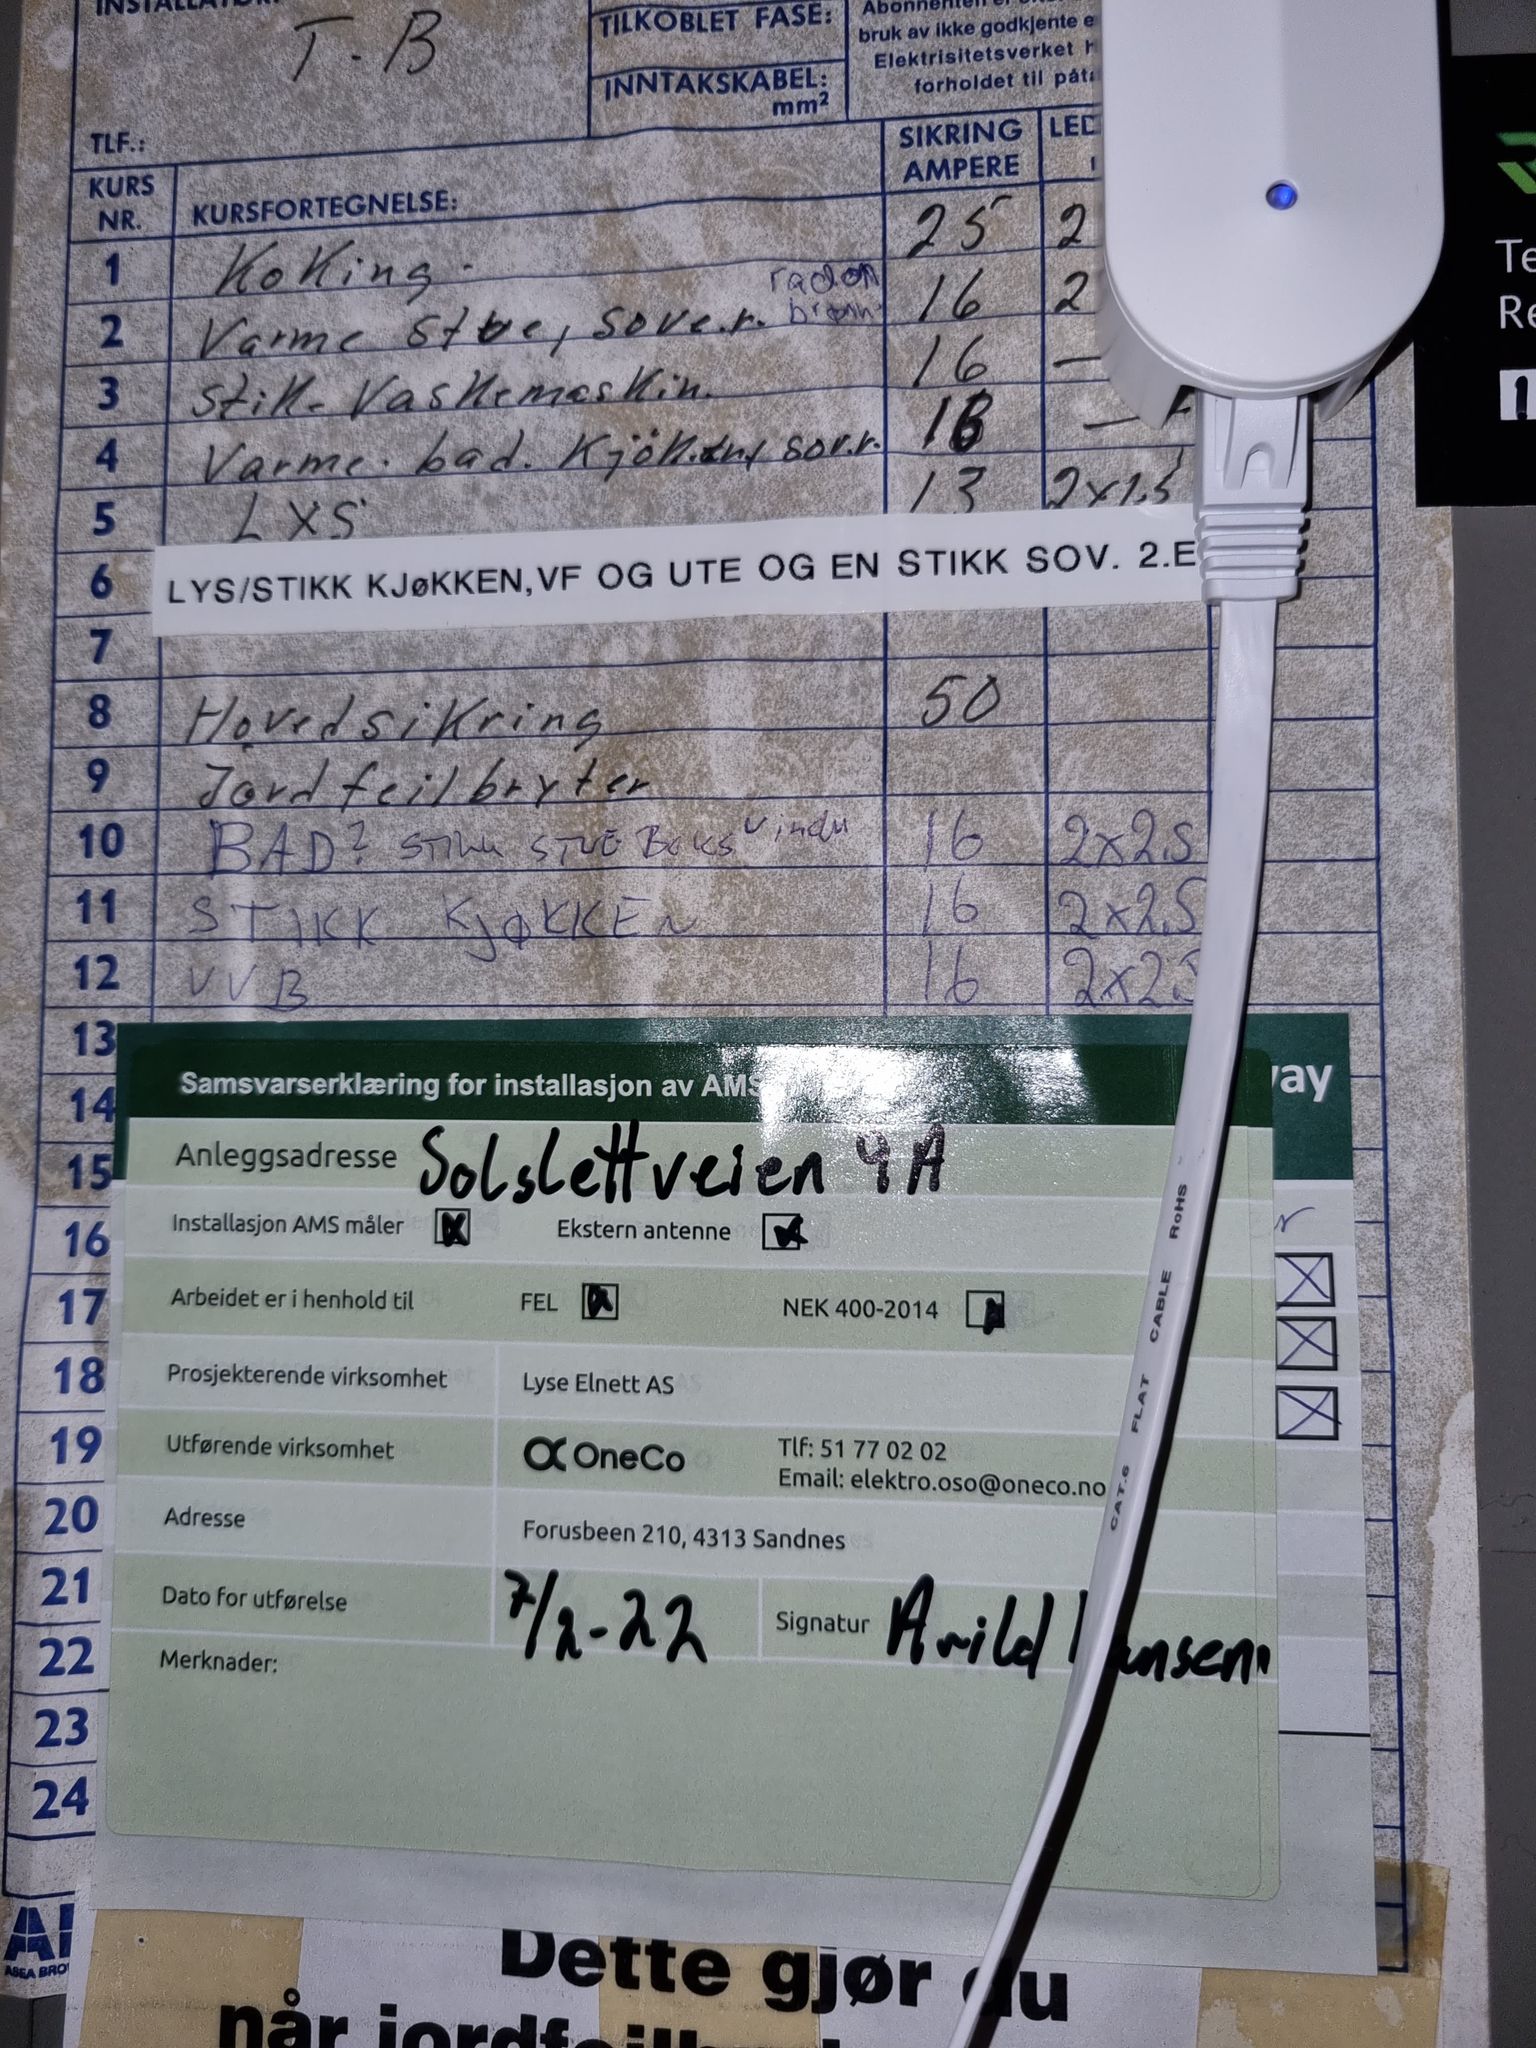 INSTALLATØR:
T-B
TILKOBLET FASE:
INNTAKSKABEL:
mm²
bruk av ikke godkjente e
Elektrisitetsverket h
forholdet til påta
TLF.:
KURS NR. KURSFORTEGNELSE: SIKRING AMPERE LED
1 Koking. 25 2
2 Varme stue, sove.r. radon brønn. 16 2
3 Stik- Vaskemaskin. 16 —
4 Varme. bad. Kjök. sov.r. 16 —
5 LYS 13 2x1,5
6 LYS/STIKK KJøKKEN,VF OG UTE OG EN STIKK SOV. 2.E
7
8 Hovedsikring 50
9 Jordfeilbryter
10 BAD? STIKK STUE BOKS Vindu 16 2x2.5
11 STIKK KJØKKEN 16 2x2.5
12 VVB 16 2x2.5
13
14
15
16
17
18
19
20
21
22
23
24
Samsvarserklæring for installasjon av AMS
way
Anleggsadresse Solslettveien 4A
Installasjon AMS måler Ekstern antenne
Arbeidet er i henhold til FEL NEK 400-2014
Prosjekterende virksomhet Lyse Elnett AS
Utførende virksomhet OneCo Tlf: 51 77 02 02
Email: elektro.oso@oneco.no
Adresse Forusbeen 210, 4313 Sandnes
Dato for utførelse 7/2-22 Signatur Arild Hansen
Merknader:
CAT.6 FLAT CABLE RoHS
Te
Re
ASEA BRO
Dette gjør du
når jordfeilbryter